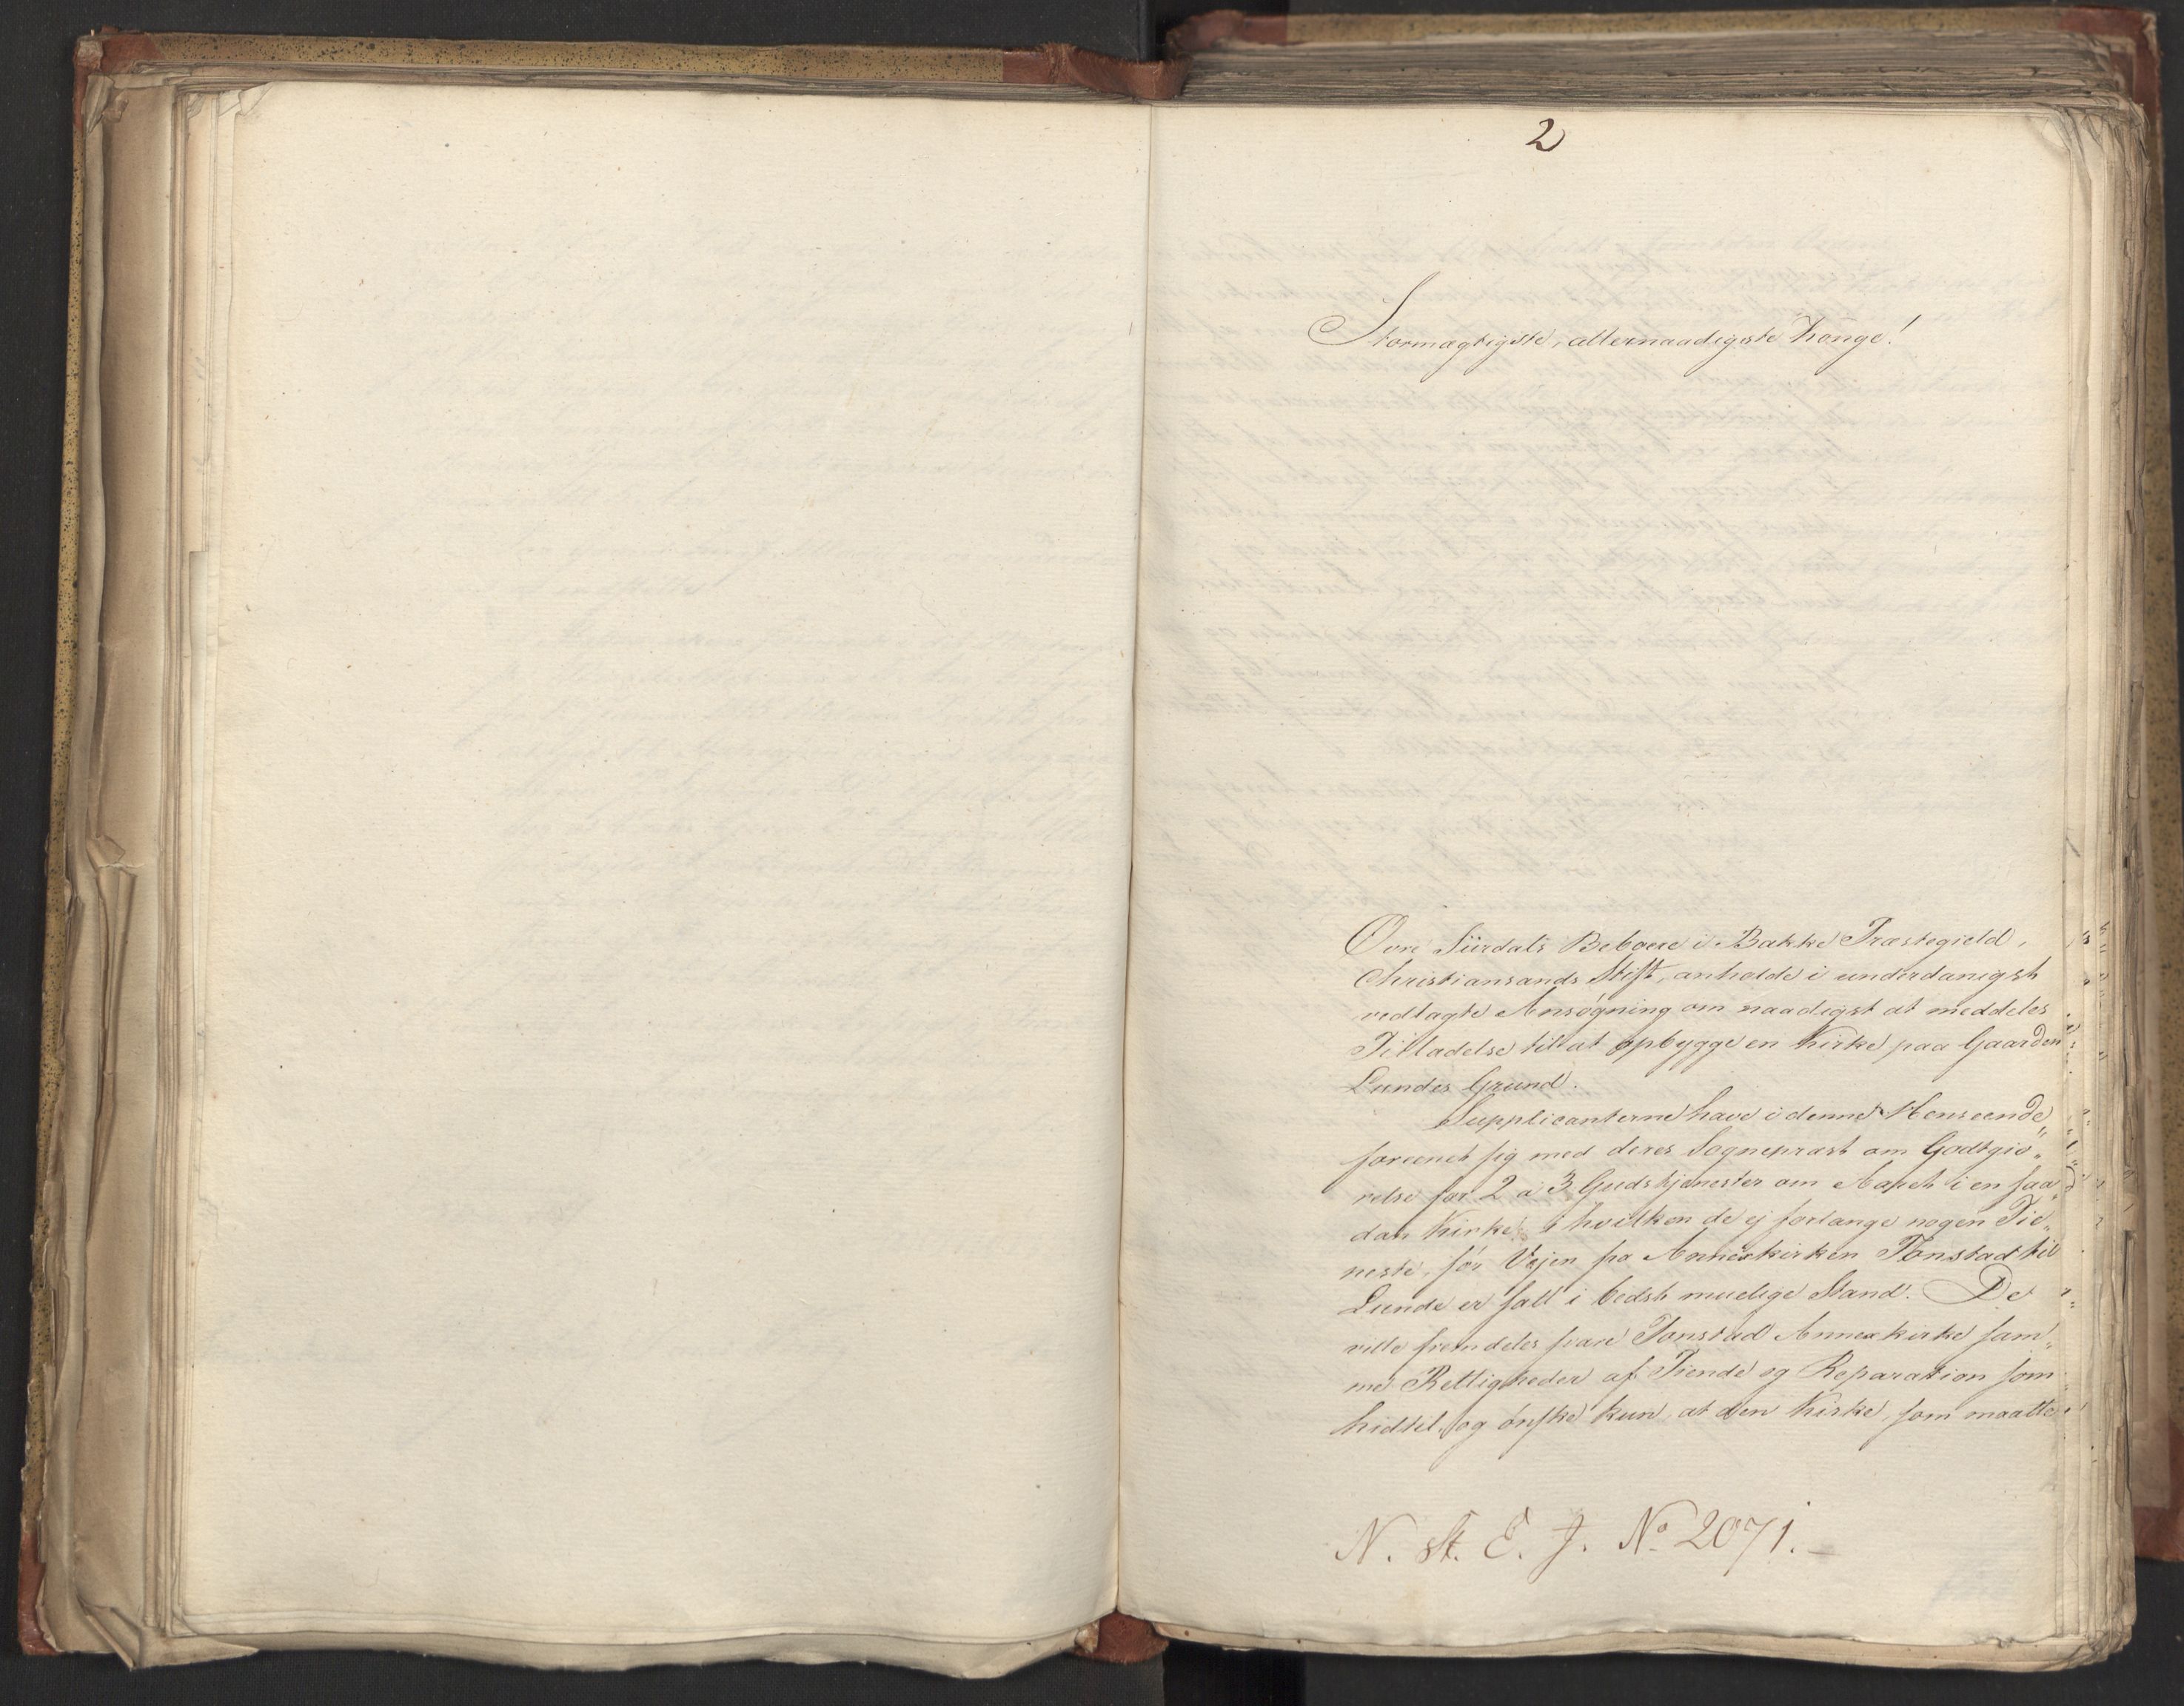 2
Stormægtigste, allernaadigste Konge!
Övre Siirdals Beboere i Bakke Præstegield,
Christiansands Stift, anholde i underdanigst
vedlagte Ansögning om naadigst at meddeles
Tilladelse til at opbygge en Kirke paa Gaarden
Lundes Grund.
Supplicanterne have i denne Henseende
foreenet sig med deres Sognepræst om Godtgiö„
relse for 2 a 3 Gudstjenester om Aaret i en saa„
dan Kirke, i hvilken de ej forlange nogen Tie„
neste, för Vejen fra Annexkirken Tonstad til
Lunde er satt i bedst muelige Stand. De
ville fremdeles svare Tonstad Annexkirke sam„
me Rettigheder af Tiende og Reparation som
hidtil, og önske kun, at den Kirke, som maatte
N. St. E. J. No 2071.